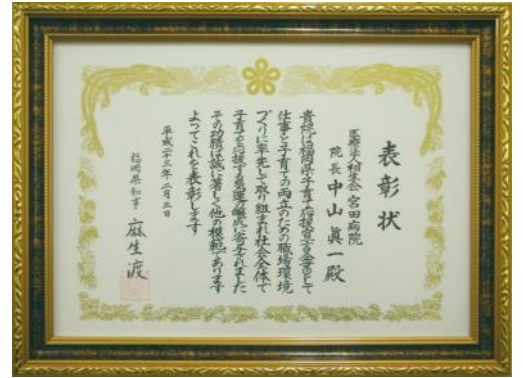 表彰状
医療法人相生会 宮田病院
院長 中山眞一殿
貴院は福岡県子育て応援宣言企業として
仕事と子育ての両立のための職場環境
づくりに率先して取り組まれ社会全体で
子育てを応援する気運の醸成に寄与されました
その功績は誠に著しく他の模範であります
よってこれを表彰します
平成二十三年二月三日
福岡県知事 麻生渡